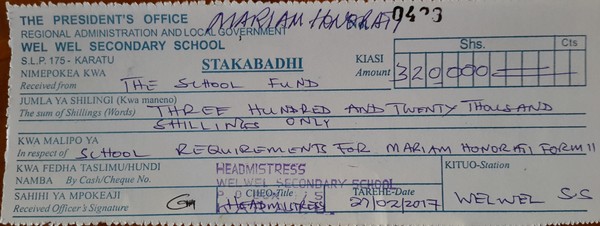 THE PRESIDENT'S OFFICE MARIAM HONORATI
REGIONAL ADMINISTRATION AND LOCAL GOVERNMENT
WEL WEL SECONDARY SCHOOL
S.L.P. 175 - KARATU STAKABADHI KIASI Shs. Cts
NIMEPOKEA KWA THE SCHOOL FUND Amount 320,000
Received from
JUMLA YA SHILINGI (Kwa maneno) THREE HUNDRED AND TWENTY THOUSAND
The sum of Shillings (Words) SHILLINGS ONLY
KWA MALIPO YA
In respect of SCHOOL REQUIREMENTS FOR MARIAM HONORATI FORM II
KWA FEDHA TASLIMU/HUNDI HEADMISTRESS KITUO-Station
NAMBA By Cash/Cheque No. WELWEL SECONDARY SCHOOL
SAHIHI YA MPOKEAJI CHEO-Title TAREHE-Date
Received Officer's Signature HEADMISTRESS 27/02/2017 WELWEL S.S